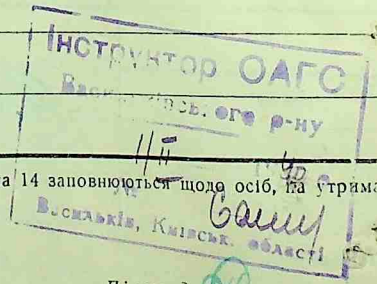 Інструктор ОАГС
Васильківськ. ого р-ну
11/II 40
та 14 заповнюються щодо осіб, на утрима
Васильків, Київськ. області